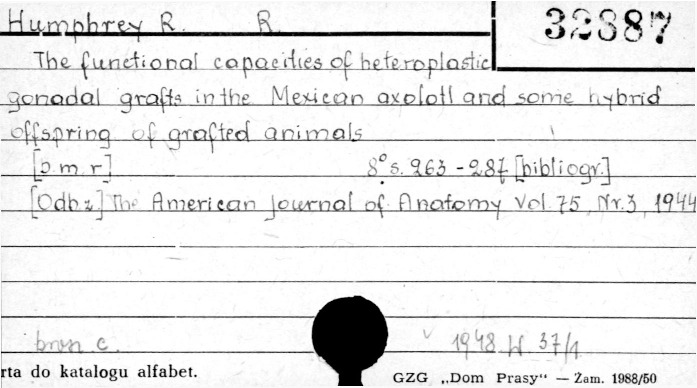 Humphrey R. R.
32887
The functional capacities of heteroplastic
gonadal grafts in the Mexican axolotl and some hybrid
offspring of grafted animals
[b.m.r] 8° s. 263-287 [bibliogr.]
[Odb.z] The American Journal of Anatomy Vol. 75, Nr. 3, 1944
1948 W 37/1
rta do katalogu alfabet.
GZG „Dom Prasy“ — Zam. 1988/50